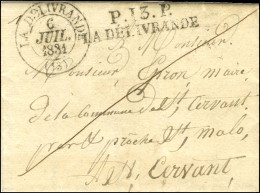 P.13.P.
LA DELIVRANDE
LA DELIVRANDE
6
JUIL.
1831
(13)
Monsieur
Monsieur Giron, maire
de la Commune de St, Servant,
par & proche St, malo,
A St, Servant,